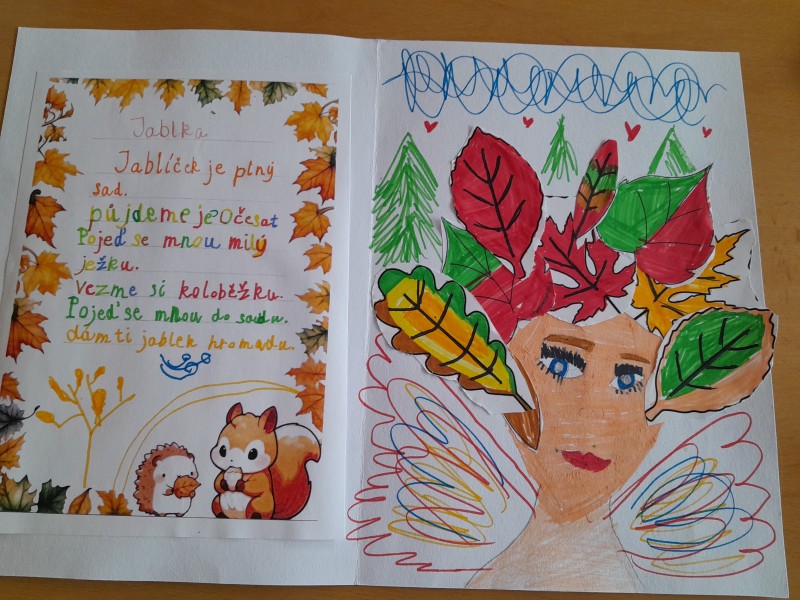 Jablka
Jablíček je plný
sad.
půjdeme je očesat
Pojeď se mnou milý
ježku.
Vezme si koloběžku.
Pojeď se mnou do sadu.
dám ti jablek hromadu.